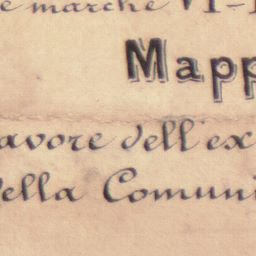 e marche VI-
Mapp
avore dell'ex
della Comuni